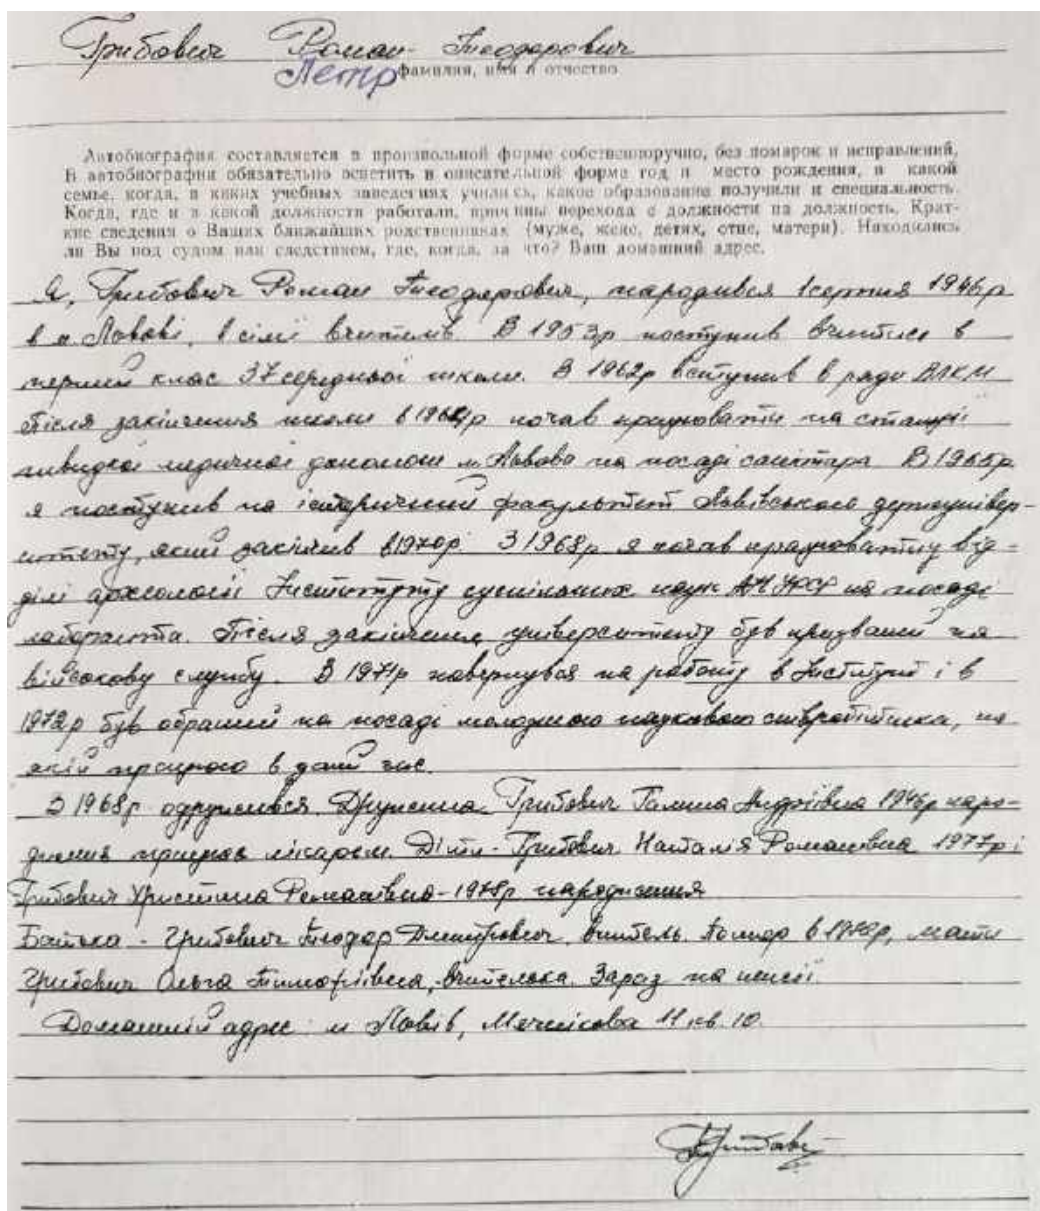 Грибович Роман Теодорович
Петр
фамилия, имя и отчество
Автобиография составляется в произвольной форме собственноручно, без помарок и исправлений.
В автобиографии обязательно осветить в описательной форме год и место рождения, в какой
семье, когда, в каких учебных заведениях учились, какое образование получили и специальность.
Когда, где и в какой должности работали, причины перехода с должности на должность. Крат-
кие сведения о Ваших ближайших родственниках (муже, жене, детях, отце, матери). Находились
ли Вы под судом или следствием, где, когда, за что? Ваш домашний адрес.
Я, Грибович Роман Теодорович, народився 1 серпня 1946р
в м. Львові, в сімї вчителів. В 1953р поступив вчитися в
перший клас 37 середньої школи. В 1962р вступив в ряди ВЛКМ
Після закінчення школи в 1964р почав працювати на станції
швидкої медичної допомоги м. Львова на посаді санітара. В 1965р
я поступив на історичний факультет Львівського держунівер-
ситету, який закінчив в 1970р. З 1968р я почав працювати у від-
ділі археології Інституту суспільних наук АН УРСР на посаді
лаборанта. Після закінчення університету був призваний на
військову службу. В 1971р повернувся на роботу в Інститут і в
1972р був обраний на посаді молодшого наукового співробітника, на
якій працюю в даний час.
З 1968р одружився. Дружина Грибович Галина Андріївна 1946р наро-
дження працює лікарем. Діти - Грибович Наталя Романівна 1977р і
Грибович Христина Романівна - 1978р народження
Батько - Грибович Теодор Дмитрович, вчитель. Помер в р, мати
Грибович Ольга Тимофіївна, вчителька. Зараз на пенсії.
Домашній адрес: м Львів, Мечнікова 11 кв. 10.